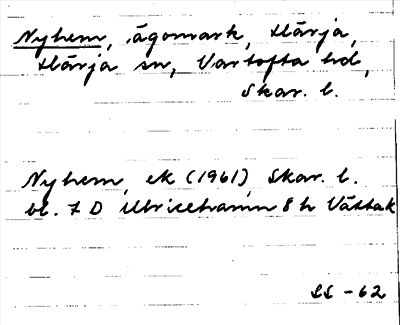 Nyhem, ägomark, Härja,
Härja sn, Vartofta hd,
Skar. l.
Nyhem, ek (1961), Skar. l.
bl. 7 D Ulricehamn 8 h Vättak
SS -62